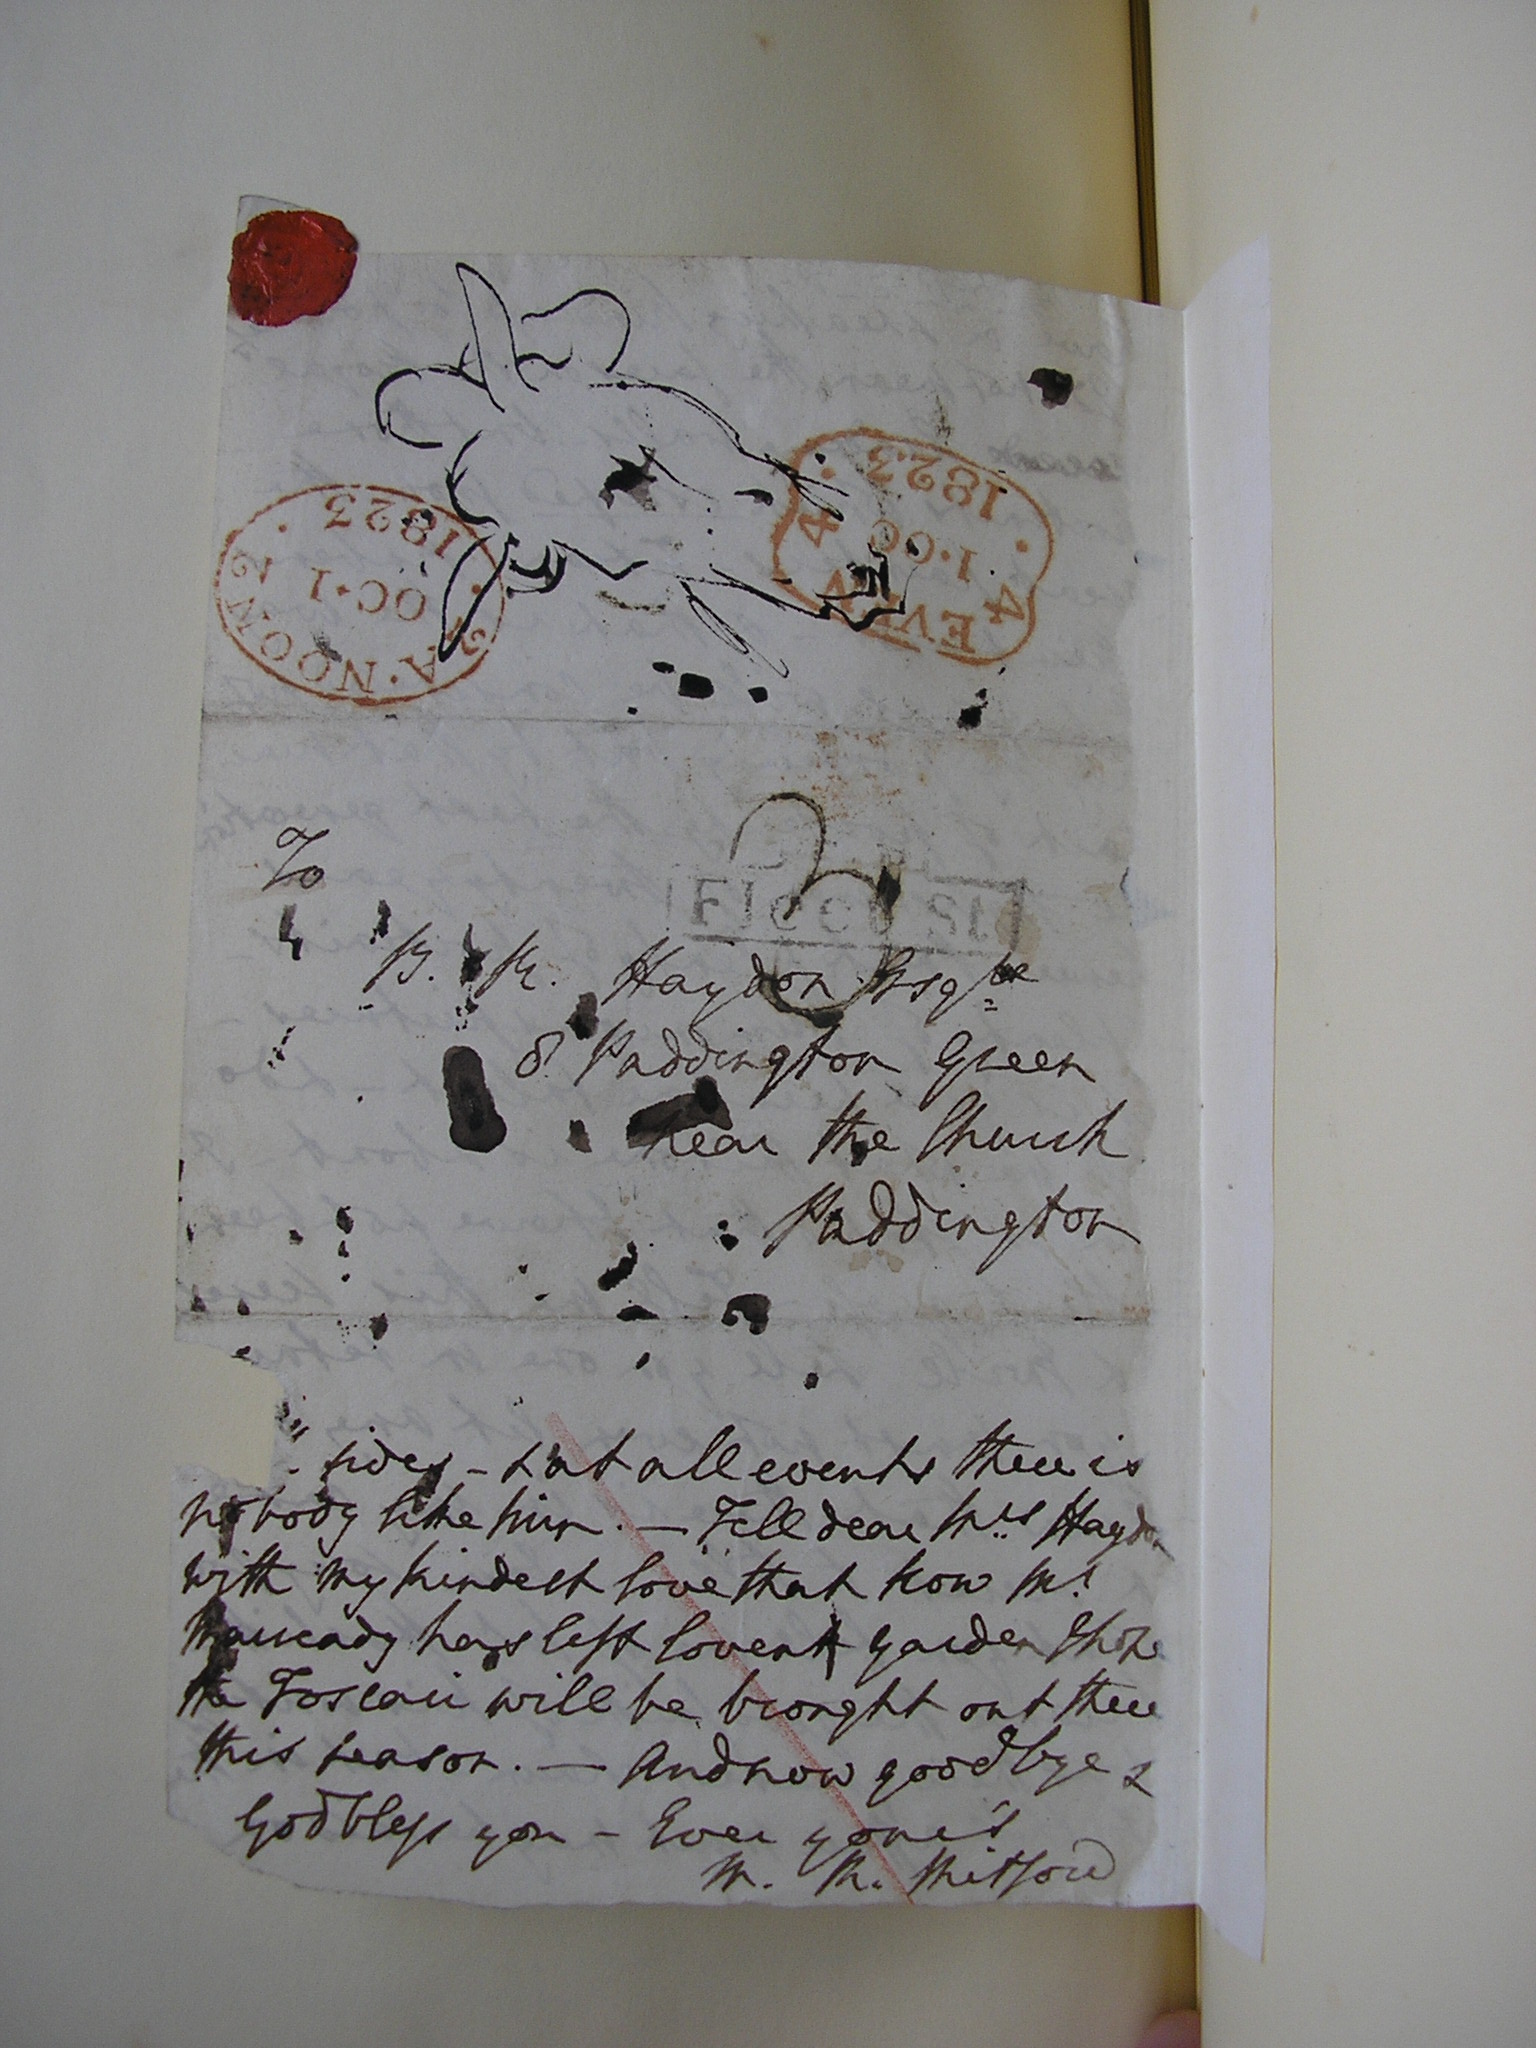 2 A.NOON 2
OC.1
1823
4 EVEN 4
1.OC
1823
To
B. R. Haydon Esqre
8 Paddington Green
near the Church
Paddington
sides - & at all events there is
nobody like him. — Tell dear Mrs Haydon
with my kindest love that now Mr
Macready has left Covent Garden I hope
the Foscari will be brought out there
this season. — And now goodbye &
God bless you - Ever yours
M. R. Mitford